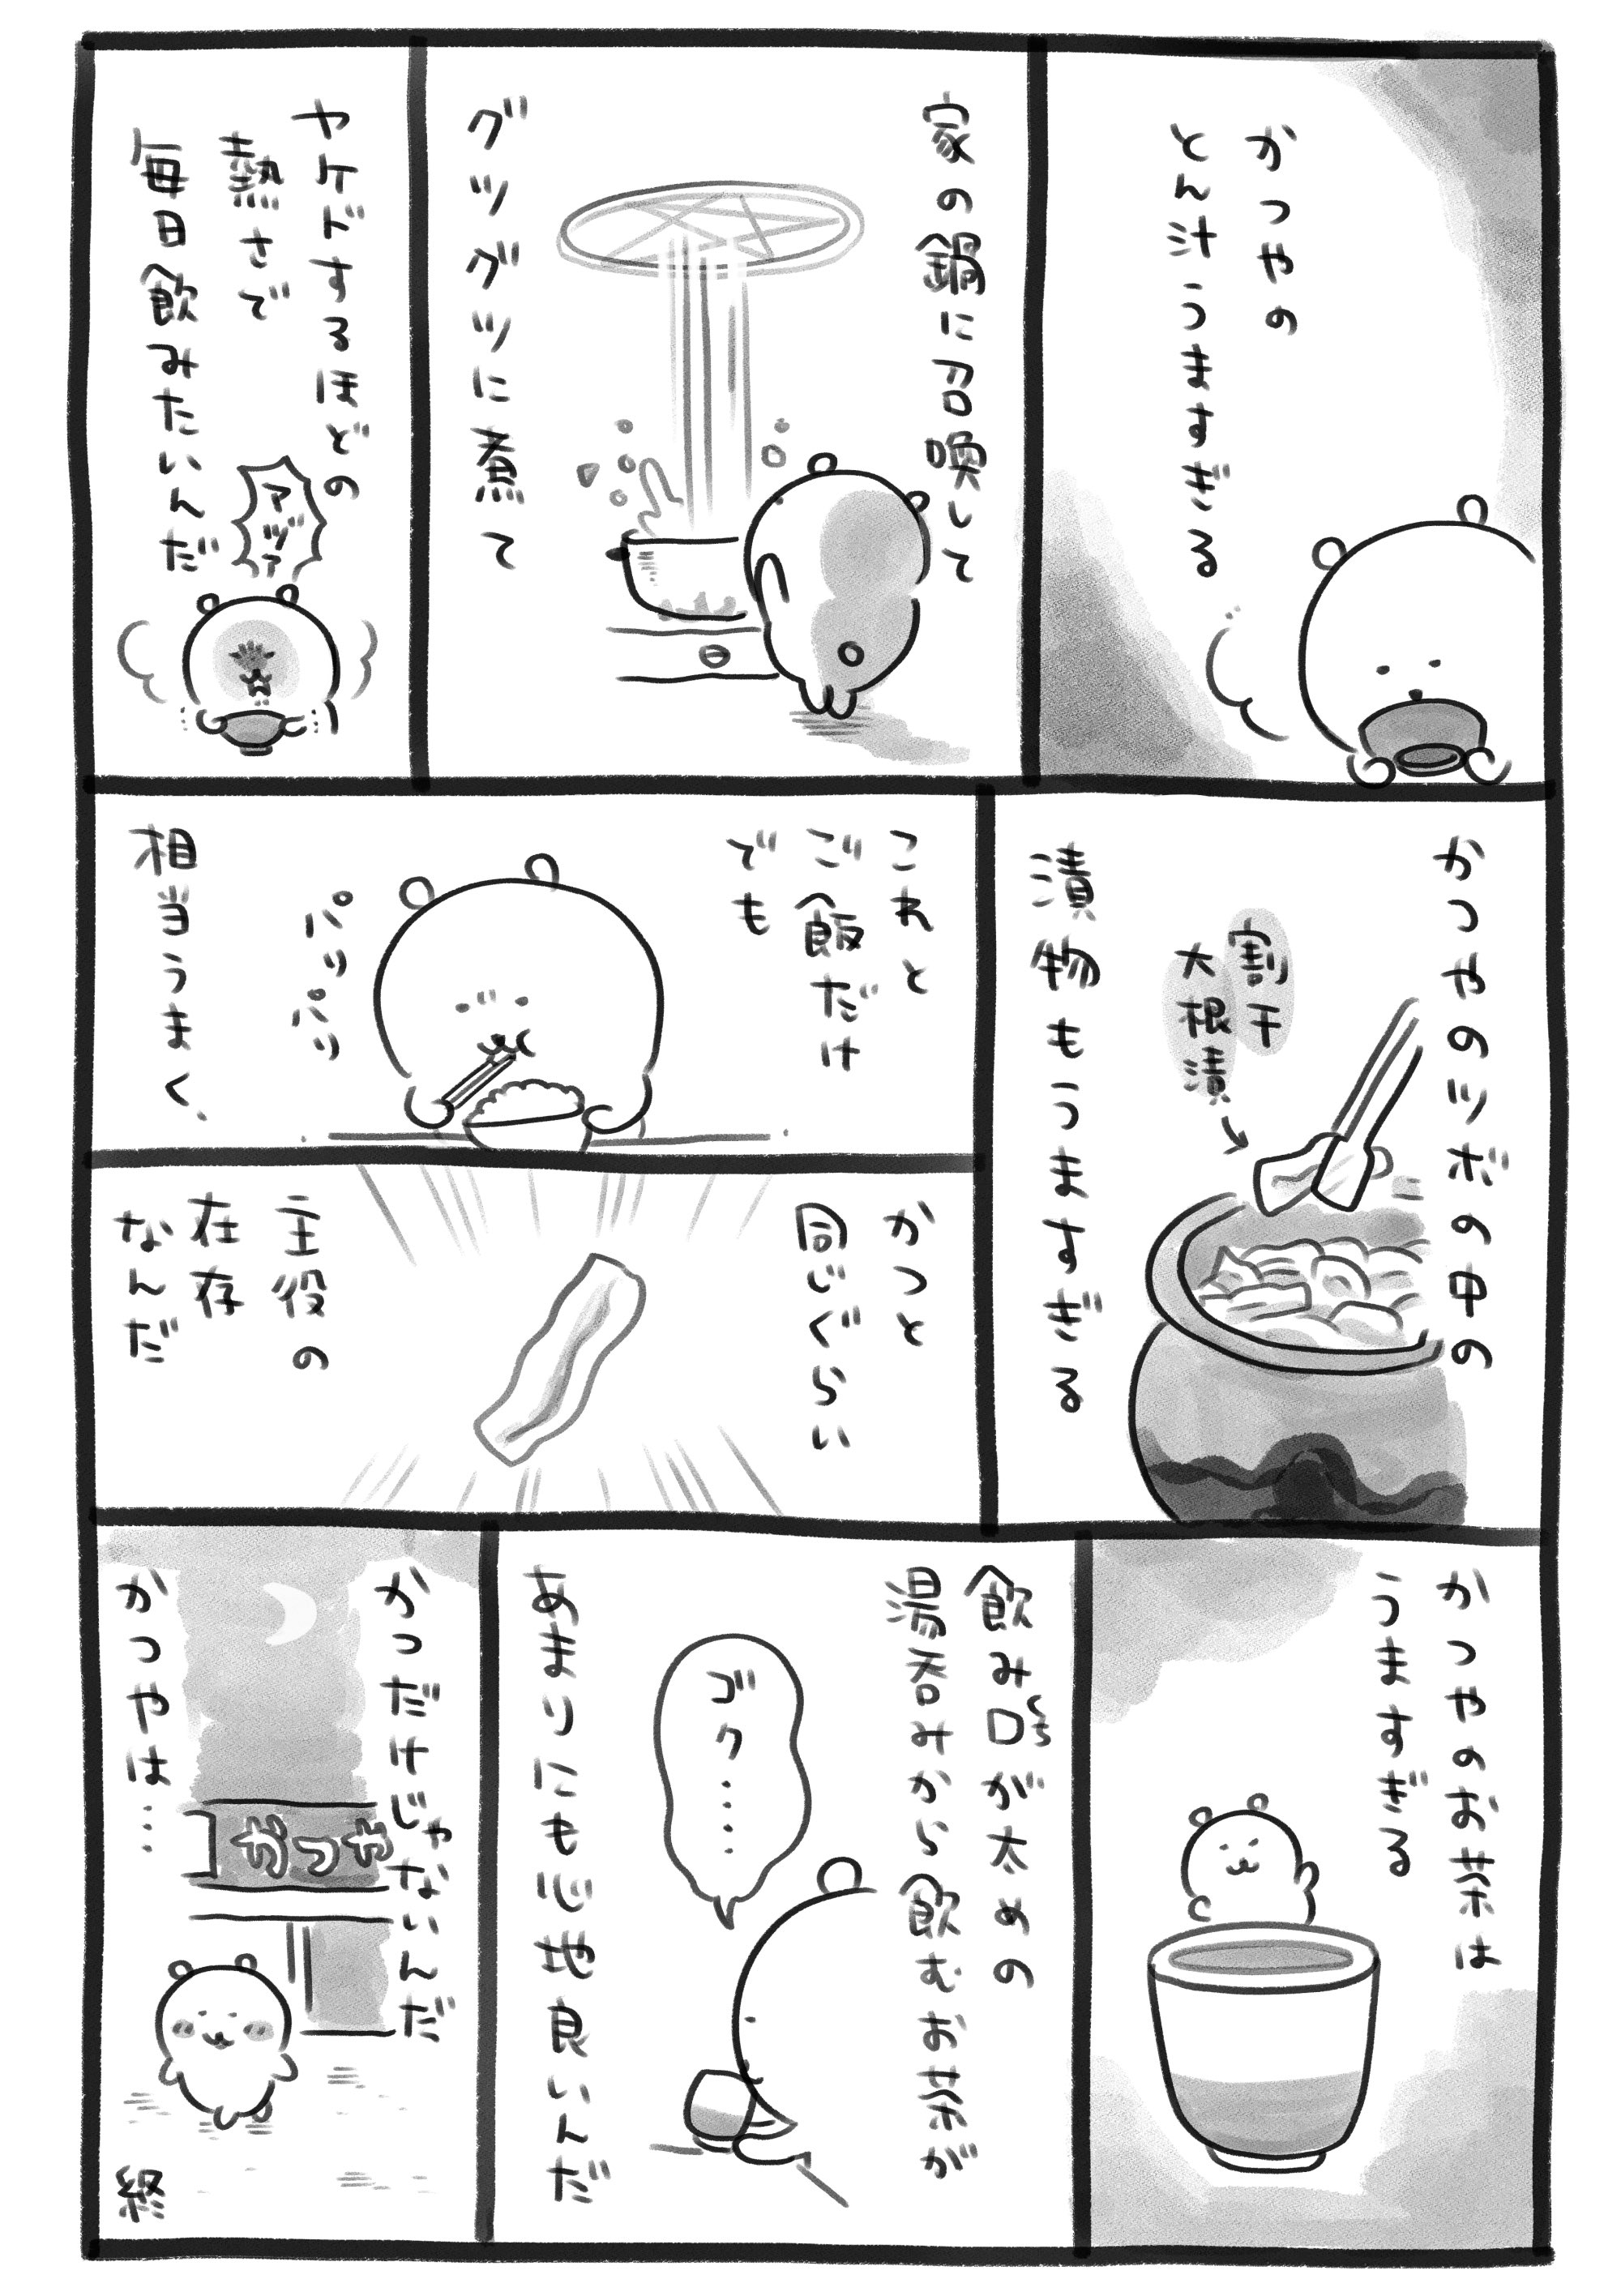 かつやの
とん汁うますぎる
家の鍋に召喚して
グツグツに煮て
ヤケドするほどの
熱さで
毎日飲みたいんだ
アヅァ
かつやのツボの中の
割干
大根漬
漬物もうますぎる
これと
ご飯だけ
でも
パリパリ
相当うまく、
かつと
同じぐらい
主役の
存在
なんだ
かつやのお茶は
うますぎる
飲み口が太めの
くち
湯呑みから飲むお茶が
ゴク……
あまりにも心地良いんだ
かつだけじゃないんだ
かつや
かつやは…
終